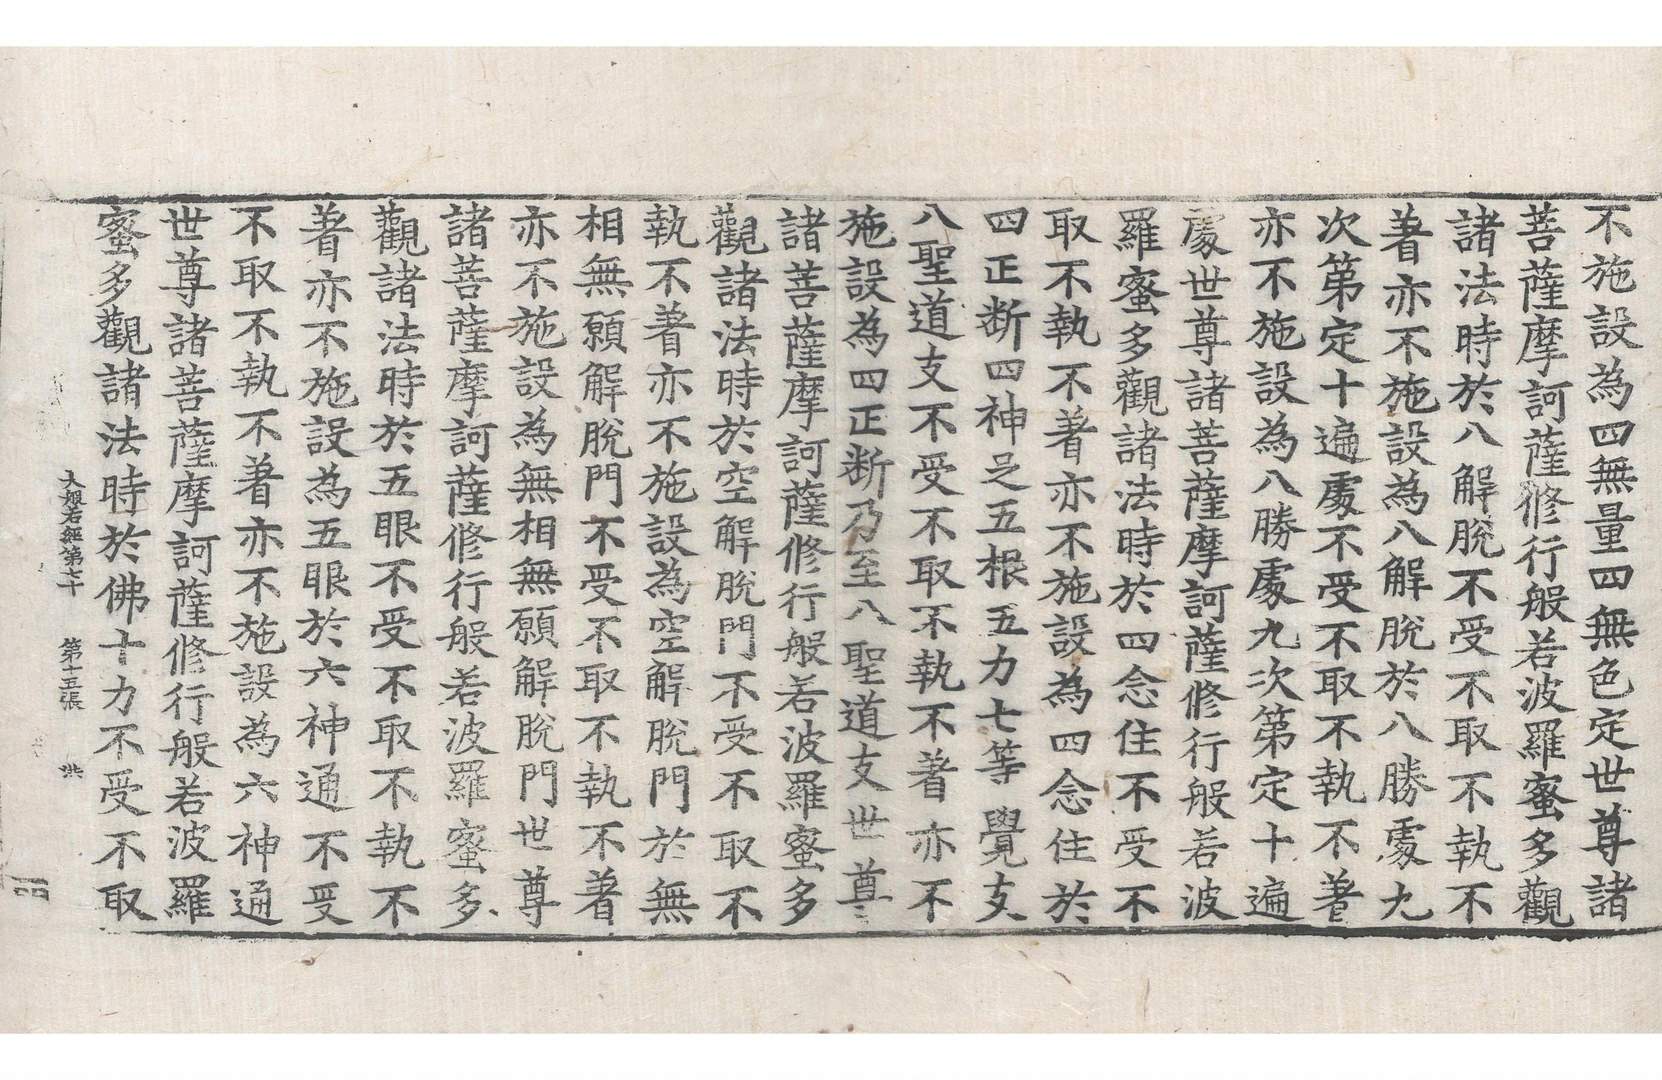 不施設為四無量四無色定世尊諸
菩薩摩訶薩修行般若波羅蜜多觀
諸法時於八解脫不受不取不執不
著亦不施設為八解脫於八勝處九
次第定十遍處不受不取不執不著
亦不施設為八勝處九次第定十遍
處世尊諸菩薩摩訶薩修行般若波
羅蜜多觀諸法時於四念住不受不
取不執不著亦不施設為四念住於
四正斷四神足五根五力七等覺支
八聖道支不受不取不執不著亦不
施設為四正斷乃至八聖道支世尊
諸菩薩摩訶薩修行般若波羅蜜多
觀諸法時於空解脫門不受不取不
執不著亦不施設為空解脫門於無
相無願解脫門不受不取不執不著
亦不施設為無相無願解脫門世尊
諸菩薩摩訶薩修行般若波羅蜜多
觀諸法時於五眼不受不取不執不
著亦不施設為五眼於六神通不受
不取不執不著亦不施設為六神通
世尊諸菩薩摩訶薩修行般若波羅
蜜多觀諸法時於佛十力不受不取
大般若經第七十 第十五張 洪